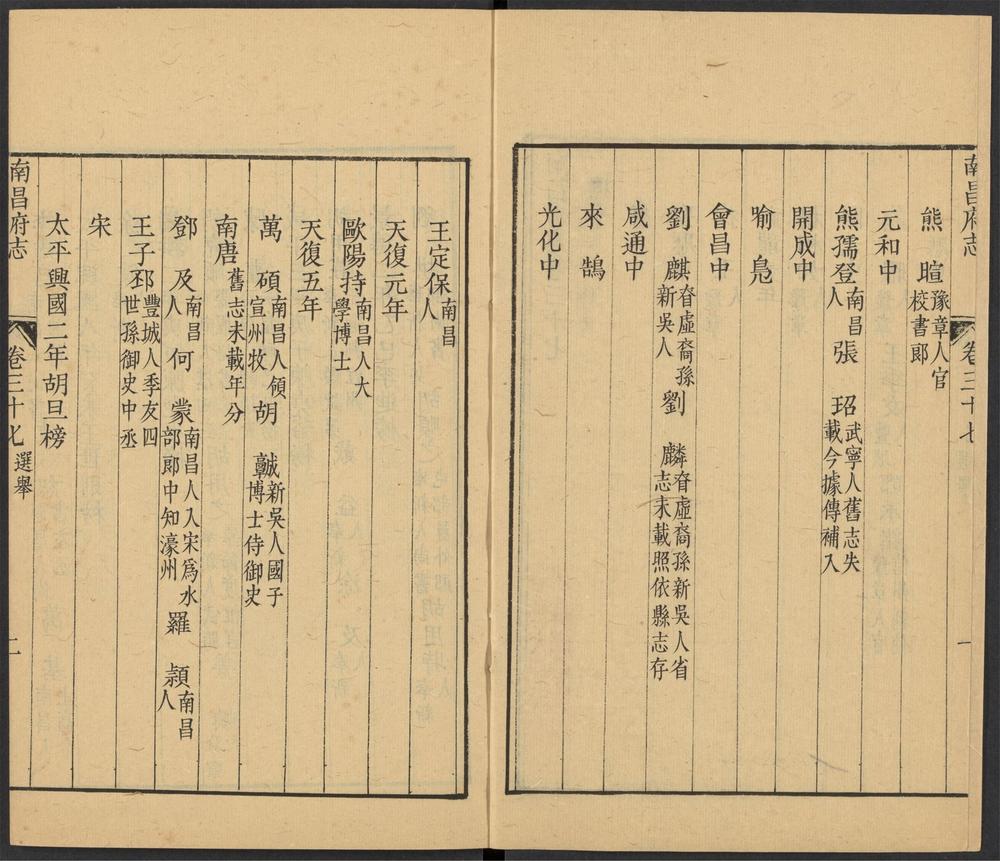 南昌府志 卷三十七 一
熊 暄豫章人官校書郎
元和中
熊孺登南昌人 張 玿武寧人舊志失載今據傳補入
開成中
喻 鳧
會昌中
劉 麒眘虛裔孫新吳人 劉 麟眘虛裔孫新吳人省志未載照依縣志存
咸通中
來 鵠
光化中
王定保南昌人
天復元年
歐陽持南昌人大學博士
天復五年
萬 碩南昌人領宣州牧 胡 㦤新吳人國子博士侍御史
南唐舊志未載年分
鄧 及南昌人 何 蒙南昌人入宋爲水部郎中知濠州 羅 潁南昌人
王子邳豐城人季友四世孫御史中丞
宋
太平興國二年胡旦榜
南昌府志 卷三十七 選舉 二